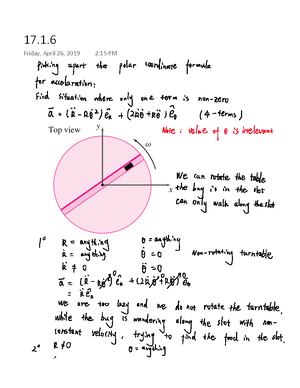 17.1.6
Friday, April 26, 2019 2:15 PM
Picking apart the polar coordinate formula
for acceleration:
Find situation where only one term is non-zero
a⃗ = (R̈ - Rθ̇²) ê_R + (2Ṙθ̇ + Rθ̈) ê_θ (4-terms)
Top view y Note: value of θ is irrelevant
ω
We can rotate the table
x the bug is in the slot
can only walk along the slot
1° R = anything θ = anything
Ṙ = anything θ̇ = 0 Non-rotating turntable
R̈ ≠ 0 θ̈ = 0
a⃗ = (R̈ - Rθ̇²⁰) ê_R + (2Ṙθ̇⁰ + Rθ̈⁰) ê_θ
= R̈ ê_R
we are too lazy and we do not rotate the turntable,
while the bug is wandering along the slot with non-
constant velocity, trying to find the food in the slot.
2° R ≠ 0 θ = anything